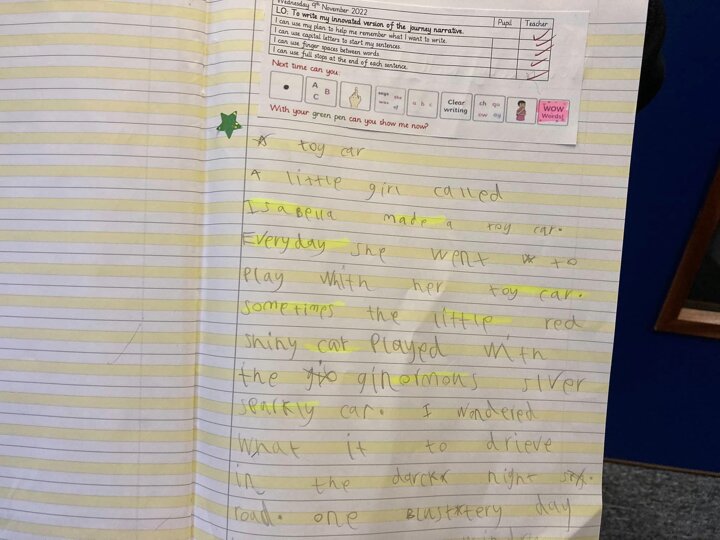 Wednesday 9th November 2022
LO: To write my innovated version of the journey narrative. Pupil Teacher
I can use my plan to help me remember what I want to write.
I can use capital letters to start my sentences.
I can use finger spaces between words
I can use full stops at the end of each sentence.
Next time can you:
A B C
a b c
Clear writing
ch qu ow ay
WOW Words!
With your green pen can you show me now?
A toy car
A little girl called
Isabella made a toy car.
Everyday she went to
play whith her toy car.
sometimes the little red
shiny car played with
the ginormous silver
sparkly car. I wondered
what it to drieve
in the darck night
road. one blusttery day